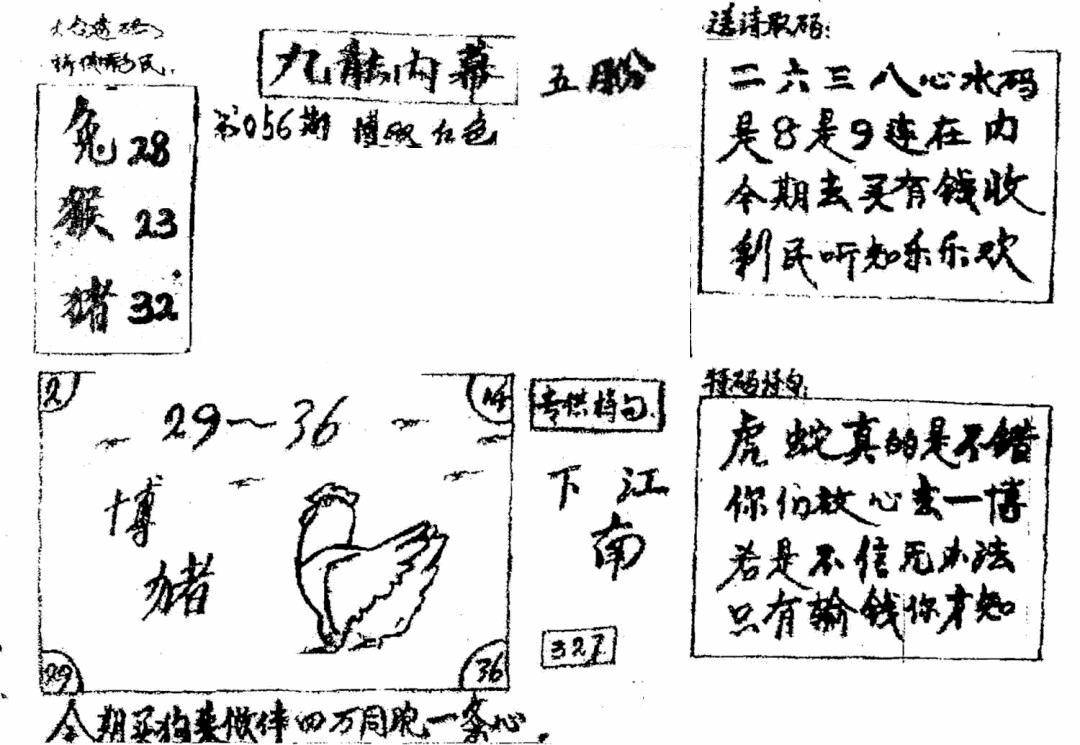 九龙内幕
五月份
第056期 博取 红色
兔 28
猴 23
猪 32
送诗取码:
二六三八心水码
是8是9连在内
今期去买有钱收
利民听知乐乐欢
2
14
29～36
博
猪
29
36
专供特句
下江
南
327
特码诗句:
虎蛇真的是不错
你们放心去一博
若是不信无办法
只有输钱你才知
今期买狗来做伴四万同胞一条心.